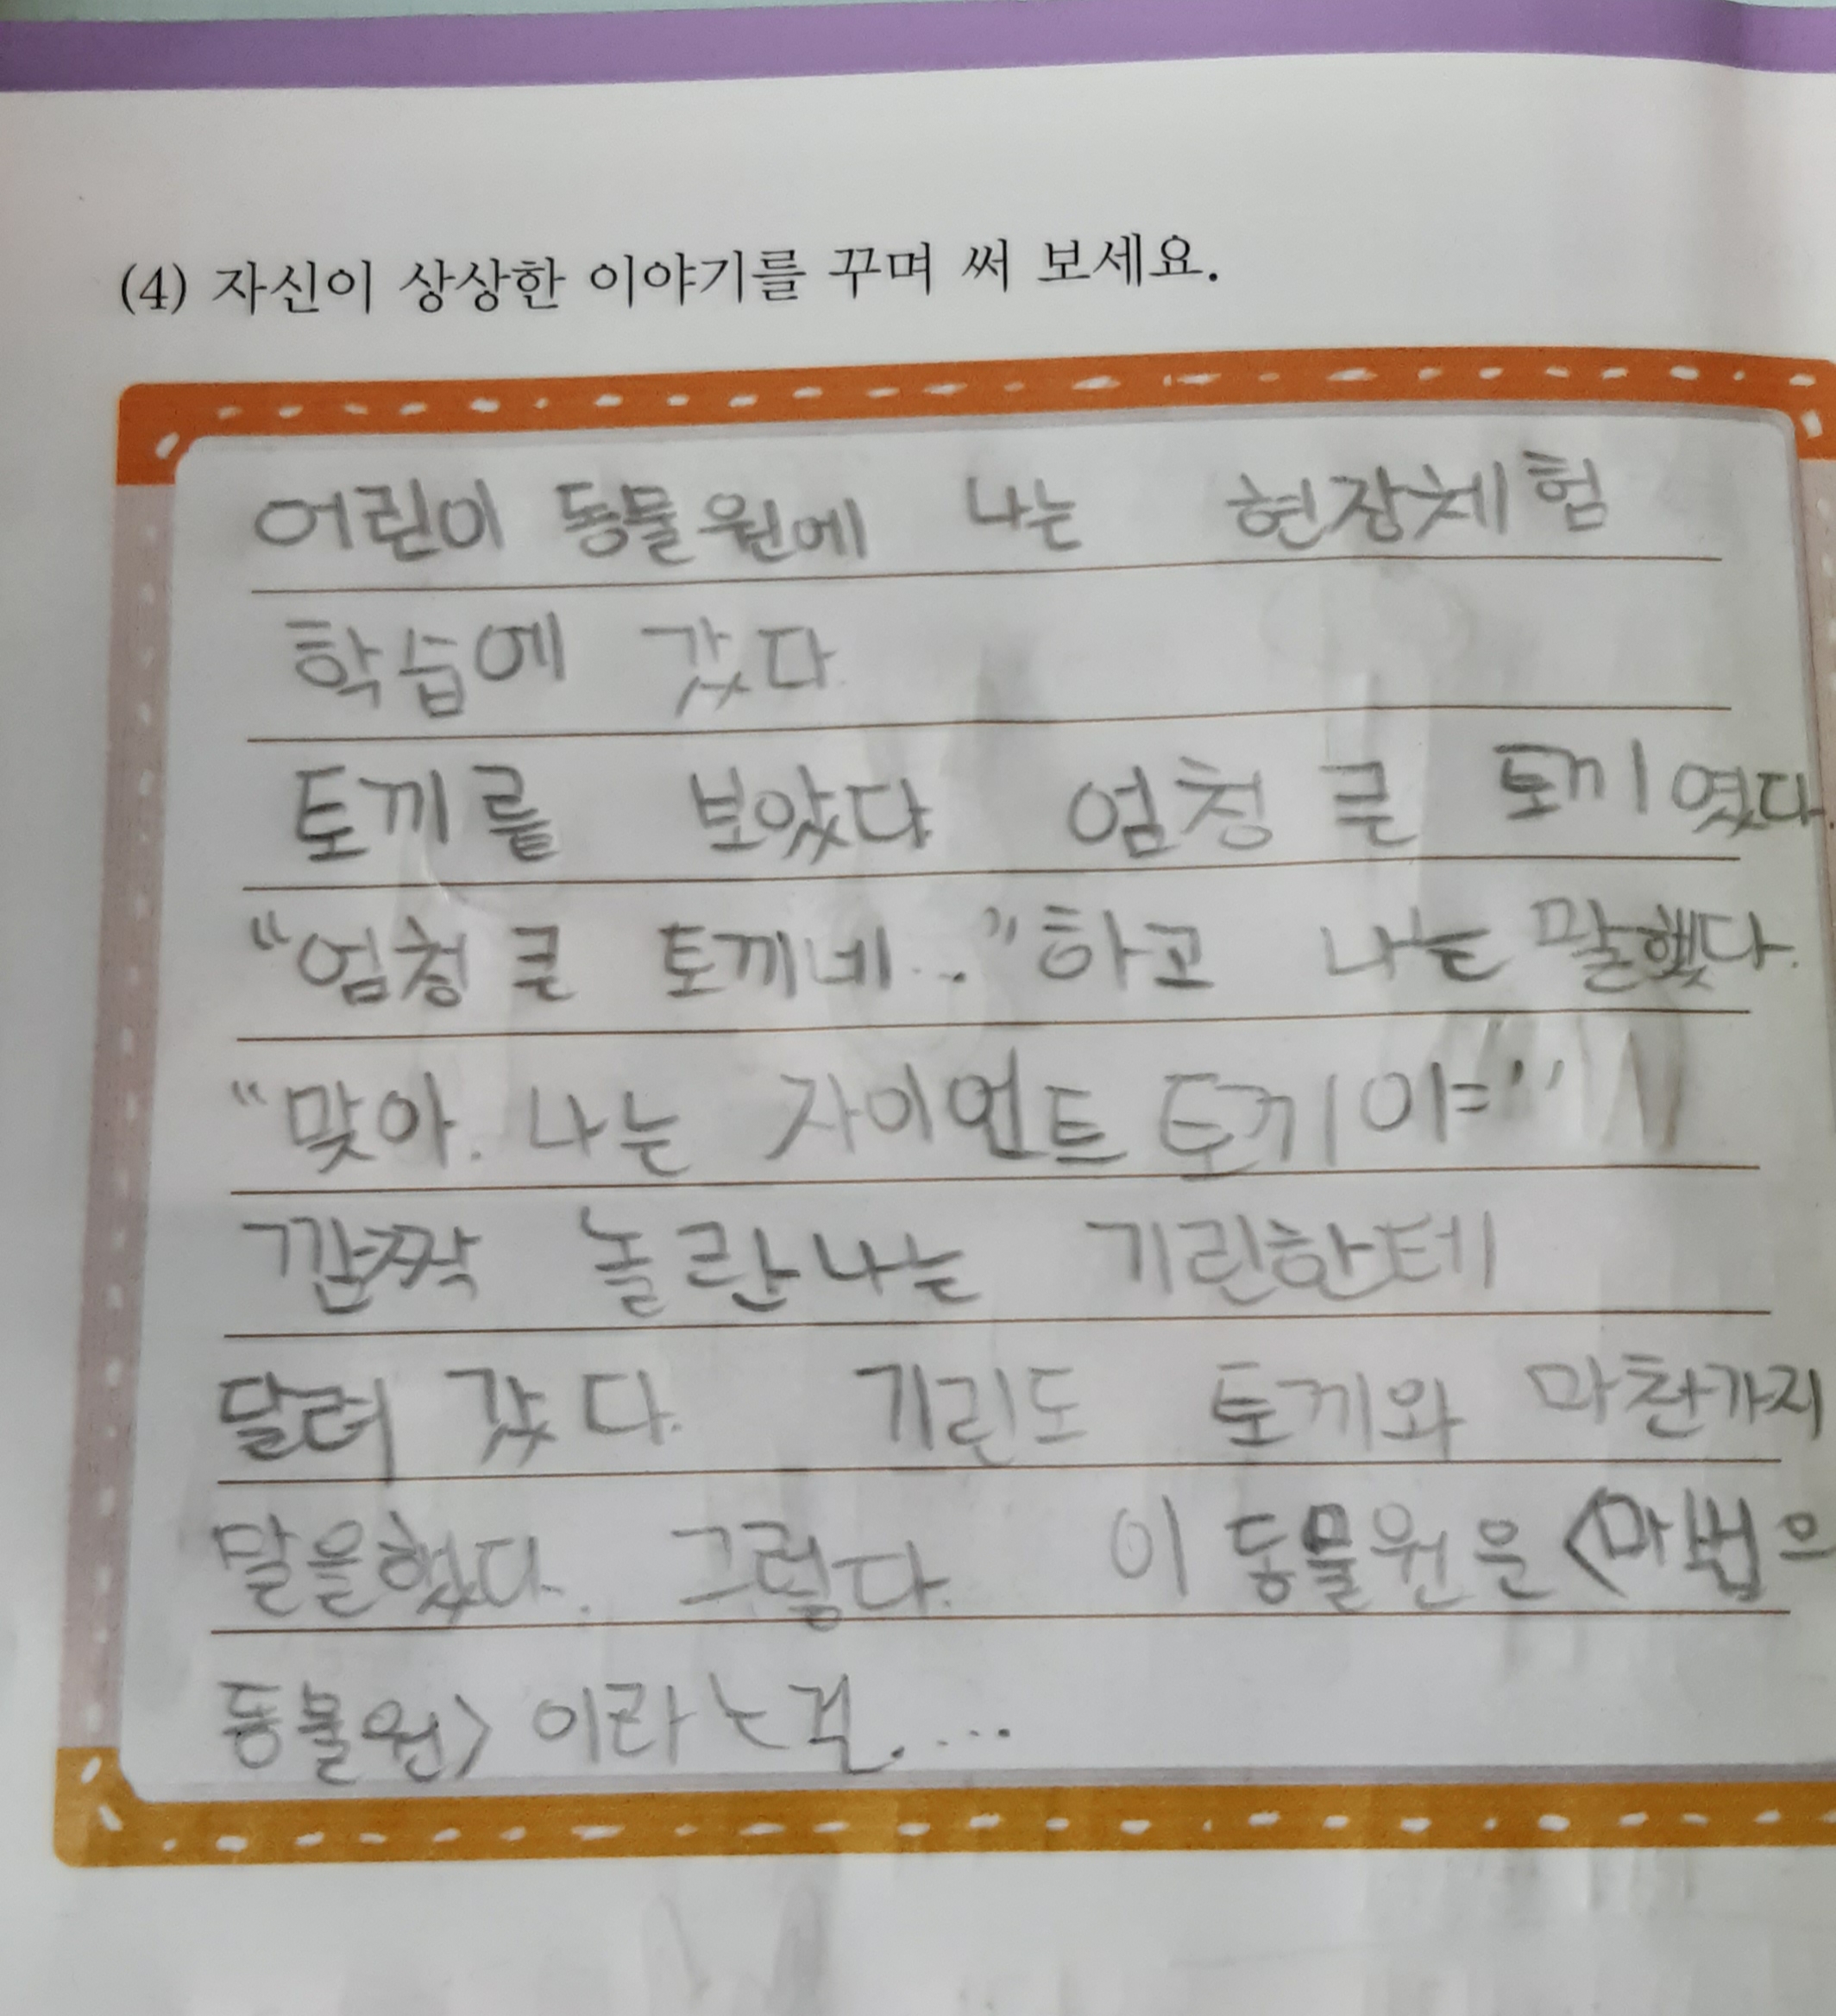 (4) 자신이 상상한 이야기를 꾸며 써 보세요.
어린이 동물원에 나는 현장체험
학습에 갔다.
토끼를 보았다 엄청 큰 토끼였다.
“엄청 큰 토끼네...”하고 나는 말했다.
“맞아. 나는 자이언트 토끼야=”
깜짝 놀란 나는 기린한테
달려 갔다. 기린도 토끼와 마찬가지
말을했다. 그렇다. 이 동물원은 <마법의
동물원> 이라는걸....